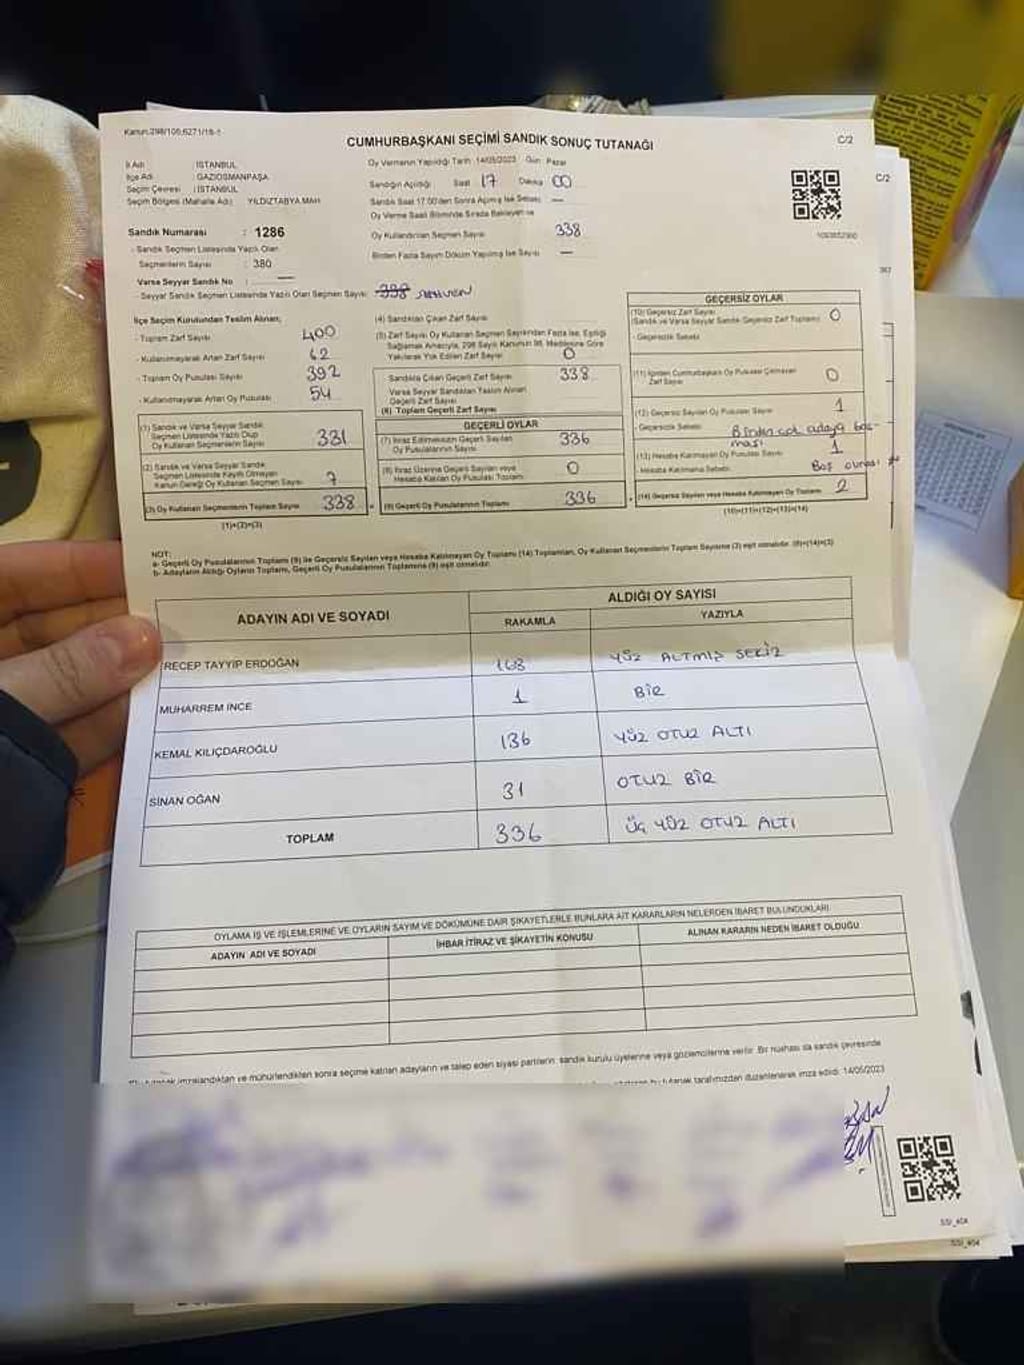 Kanun:298/105,6271/18-1
CUMHURBAŞKANI SEÇİMİ SANDIK SONUÇ TUTANAĞI
C/2
C/2
İl Adı : İSTANBUL
İlçe Adı : GAZİOSMANPAŞA
Seçim Çevresi : İSTANBUL
Seçim Bölgesi (Mahalle Adı) YILDIZTABYA MAH
Oy Vermenin Yapıldığı Tarih 14/05/2023 Gün Pazar
Sandığın Açıldığı Saat 17 Dakika 00
Sandık Saat 17.00'den Sonra Açılmış İse Sebebi —
Oy Verme Saati Bitiminde Sırada Bekleyen ve
Oy Kullandırılan Seçmen Sayısı 338
Birden Fazla Sayım Döküm Yapılmış İse Sayısı —
Sandık Numarası : 1286
- Sandık Seçmen Listesinde Yazılı Olan
Seçmenlerin Sayısı : 380
Varsa Seyyar Sandık No : —
- Seyyar Sandık Seçmen Listesinde Yazılı Olan Seçmen Sayısı: 338 SEHVEN
İlçe Seçim Kurulundan Teslim Alınan;
- Toplam Zarf Sayısı 400
- Kullanılmayarak Artan Zarf Sayısı 62
- Toplam Oy Pusulası Sayısı 392
- Kullanılmayarak Artan Oy Pusulası 54
(1) Sandık ve Varsa Seyyar Sandık
Seçmen Listesinde Yazılı Olup
Oy Kullanan Seçmenlerin Sayısı 331
(2) Sandık ve Varsa Seyyar Sandık
Seçmen Listesinde Kayıtlı Olmayan
Kanun Gereği Oy Kullanan Seçmen Sayısı 7
(3) Oy Kullanan Seçmenlerin Toplam Sayısı 338
(1)+(2)=(3)
(4) Sandıktan Çıkan Zarf Sayısı
(5) Zarf Sayısı Oy Kullanan Seçmen Sayısından Fazla İse, Eşitliği
Sağlamak Amacıyla, 298 Sayılı Kanunun 98. Maddesine Göre
Yakılarak Yok Edilen Zarf Sayısı 0
Sandıkta Çıkan Geçerli Zarf Sayısı 338
Varsa Seyyar Sandıktan Teslim Alınan
Geçerli Zarf Sayısı
(6) Toplam Geçerli Zarf Sayısı
GEÇERLİ OYLAR
(7) İtiraz Edilmeksizin Geçerli Sayılan
Oy Pusulalarının Sayısı 336
(8) İtiraz Üzerine Geçerli Sayılan veya
Hesaba Katılan Oy Pusulası Toplamı 0
(9) Geçerli Oy Pusulalarının Toplamı 336
GEÇERSİZ OYLAR
(10) Geçersiz Zarf Sayısı
(Sandık ve Varsa Seyyar Sandık Geçersiz Zarf Toplamı) 0
- Geçersizlik Sebebi
(11) İçinden Cumhurbaşkanı Oy Pusulası Çıkmayan
Zarf Sayısı 0
(12) Geçersiz Sayılan Oy Pusulası Sayısı 1
- Geçersizlik Sebebi Birden çok adaya bas-
ması
(13) Hesaba Katılmayan Oy Pusulası Sayısı 1
- Hesaba Katılmama Sebebi Boş olması
(14) Geçersiz Sayılan veya Hesaba Katılmayan Oy Toplamı 2
(10)+(11)+(12)+(13)=(14)
NOT:
a- Geçerli Oy Pusulalarının Toplamı (9) ile Geçersiz Sayılan veya Hesaba Katılmayan Oy Toplamı (14) Toplamları, Oy Kullanan Seçmenlerin Toplam Sayısına (3) eşit olmalıdır. (9)+(14)=(3)
b- Adayların Aldığı Oyların Toplamı, Geçerli Oy Pusulalarının Toplamına (9) eşit olmalıdır.
ADAYIN ADI VE SOYADI
ALDIĞI OY SAYISI
RAKAMLA YAZIYLA
RECEP TAYYİP ERDOĞAN 168 YÜZ ALTMIŞ SEKİZ
MUHARREM İNCE 1 BİR
KEMAL KILIÇDAROĞLU 136 YÜZ OTUZ ALTI
SİNAN OĞAN 31 OTUZ BİR
TOPLAM 336 ÜÇ YÜZ OTUZ ALTI
OYLAMA İŞ VE İŞLEMLERİNE VE OYLARIN SAYIM VE DÖKÜMÜNE DAİR ŞİKAYETLERLE BUNLARA AİT KARARLARIN NELERDEN İBARET BULUNDUKLARI
ADAYIN ADI VE SOYADI İHBAR İTİRAZ VE ŞİKAYETİN KONUSU ALINAN KARARIN NEDEN İBARET OLDUĞU
imzalandıktan ve mühürlendikten sonra seçime katılan adayların ve talep eden siyasi partilerin sandık kurulu üyelerine veya gözlemcilerine verilir. Bir nüshası da sandık çevresinde
bu tutanak tarafımızdan düzenlenerek imza edildi. 14/05/2023
SSI_404
SSI_404